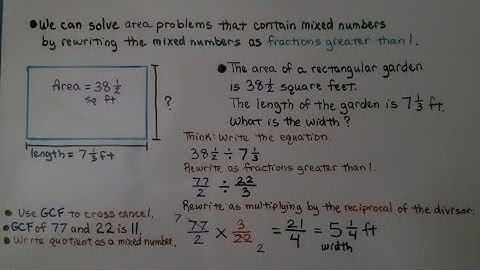 •We can solve area problems that contain mixed numbers
by rewriting the mixed numbers as fractions greater than 1.
Area = 38 1/2
sq ft
?
length = 7 1/3 ft
•The area of a rectangular garden
is 38 1/2 square feet.
The length of the garden is 7 1/3 ft.
What is the width?
Think: Write the equation.
38 1/2 ÷ 7 1/3
Rewrite as fractions greater than 1.
77/2 ÷ 22/3
Rewrite as multiplying by the reciprocal of the divisor.
7 77/2 × 3/22 2 = 21/4 = 5 1/4 ft
width
•Use GCF to cross cancel.
•GCF of 77 and 22 is 11.
•Write quotient as a mixed number.